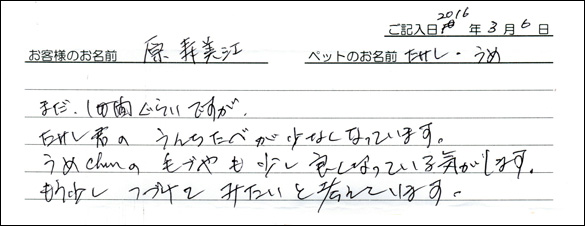 ご記入日 2016年3月6日
お客様のお名前 原 寿美江 ペットのお名前 たけし・うめ
まだ、1週間ぐらいですが、
たけし君の うんちたべが少なくなっています。
うめchanの毛づやも少し良くなっている気がします。
もう少し つづけて みたいと考えています。